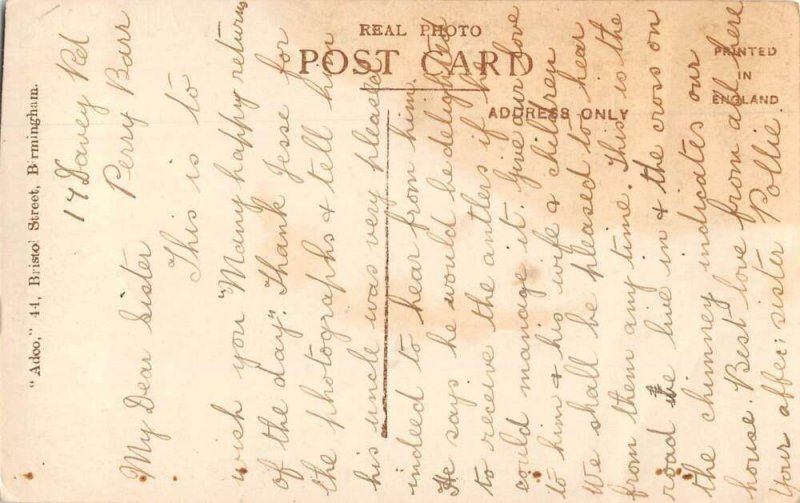 REAL PHOTO
POST CARD
PRINTED
IN
ENGLAND
ADDRESS ONLY
"Adco," 44, Bristol Street, Birmingham.
17 Davey Rd
Perry Barr
My Dear Sister
This is to
wish you "Many happy returns
of the day". Thank Jesse for
the photographs & tell him
his uncle was very pleased
indeed to hear from him.
He says he would be delighted
to receive the antlers if he
could manage it. Give our love
to him & his wife & children
We shall be pleased to hear
from them any time. This is the
road we live in & the cross on
the chimney indicates our
house. Best love from all here
Your affec: sister Pollie.